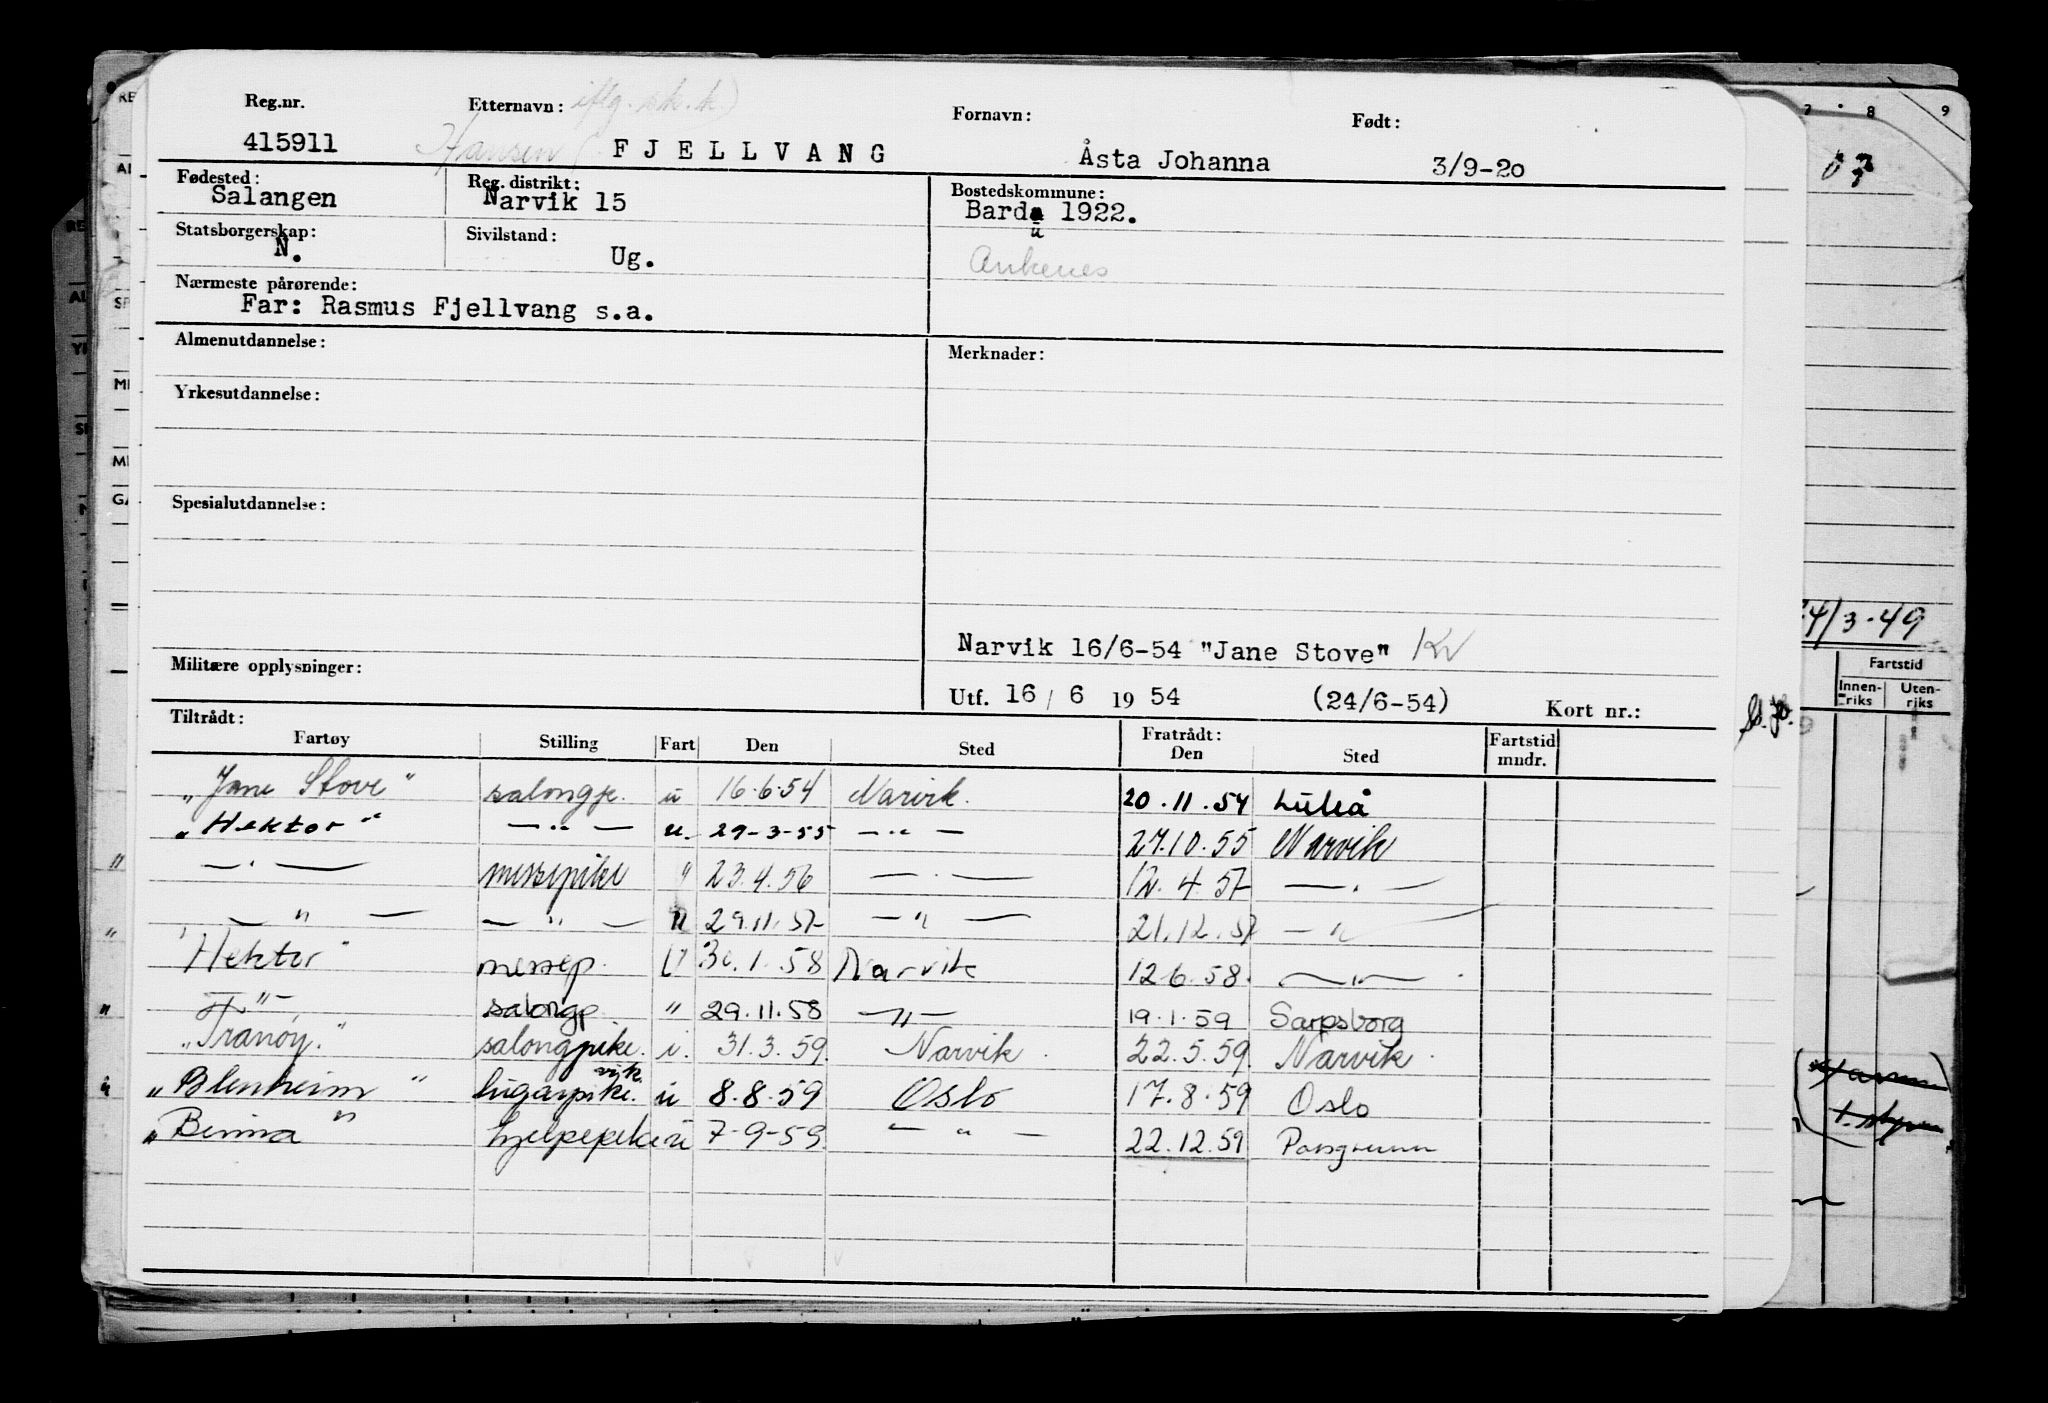 Reg.nr. Etternavn: iflg. sk. k.) Fornavn: Født:
415911 Hansen ( FJELLVANG Åsta Johanna 3/9-20
Fødested: Reg. distrikt: Bostedskommune:
Salangen Narvik 15 Bardu 1922.
Statsborgerskap: Sivilstand:
N. Ug. Ankenes
Nærmeste pårørende:
Far: Rasmus Fjellvang s.a.
Almenutdannelse: Merknader:
Yrkesutdannelse:
Spesialutdannelse:
Narvik 16/6-54 "Jane Stove" Kv
Militære opplysninger:
Utf. 16 / 6 19 54 (24/6-54) Kort nr.:
Tiltrådt: Fratrådt:
Fartøy Stilling Fart Den Sted Den Sted Fartstid mndr.
"Jane Stove" salongp. u 16.6.54 Narvik. 20.11.54 Luleå
"Hektor" — " — u. 29-3-55 — " — 27.10.55 Narvik
— " — messepike " 23.4.56 — " — 12.4.57 — " —
— " — — " — u 29.11.57 — " — 21.12.57 — " —
"Hektor" messep. U 30.1.58 Narvik 12.6.58. — " —
— " — salongp. " 29.11.58 — " — 19.1.59 Sarpsborg
"Tranøy" salongpike. i. 31.3.59. Narvik. 22.5.59. Narvik.
"Blenheim" lugarpike. vik. u 8.8.59 Oslo 17.8.59 Oslo
"Binna" hjelpepike u 7-9-59. — " — 22.12.59 Porsgrunn
7 8 9
4/3-49
Fartstid
Innen-riks Uten-riks